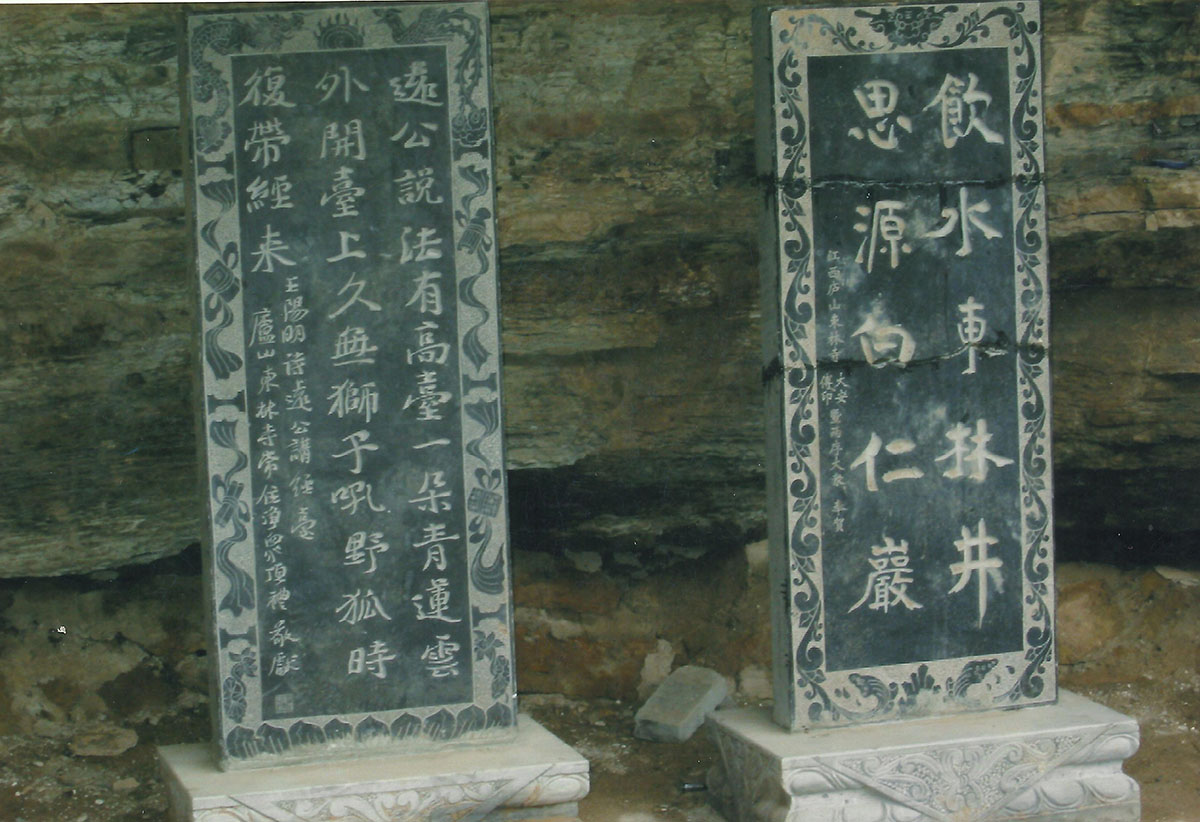 飲水東林井
思源白仁巖
江西庐山東林寺 大安 傳印 暨两序大衆 奉賀
遠公説法有高臺一朵青蓮雲
外開臺上久無獅子吼野狐時
復帶經来
王陽明诗遠公講經臺
廬山東林寺常住淨眾頂禮敬獻